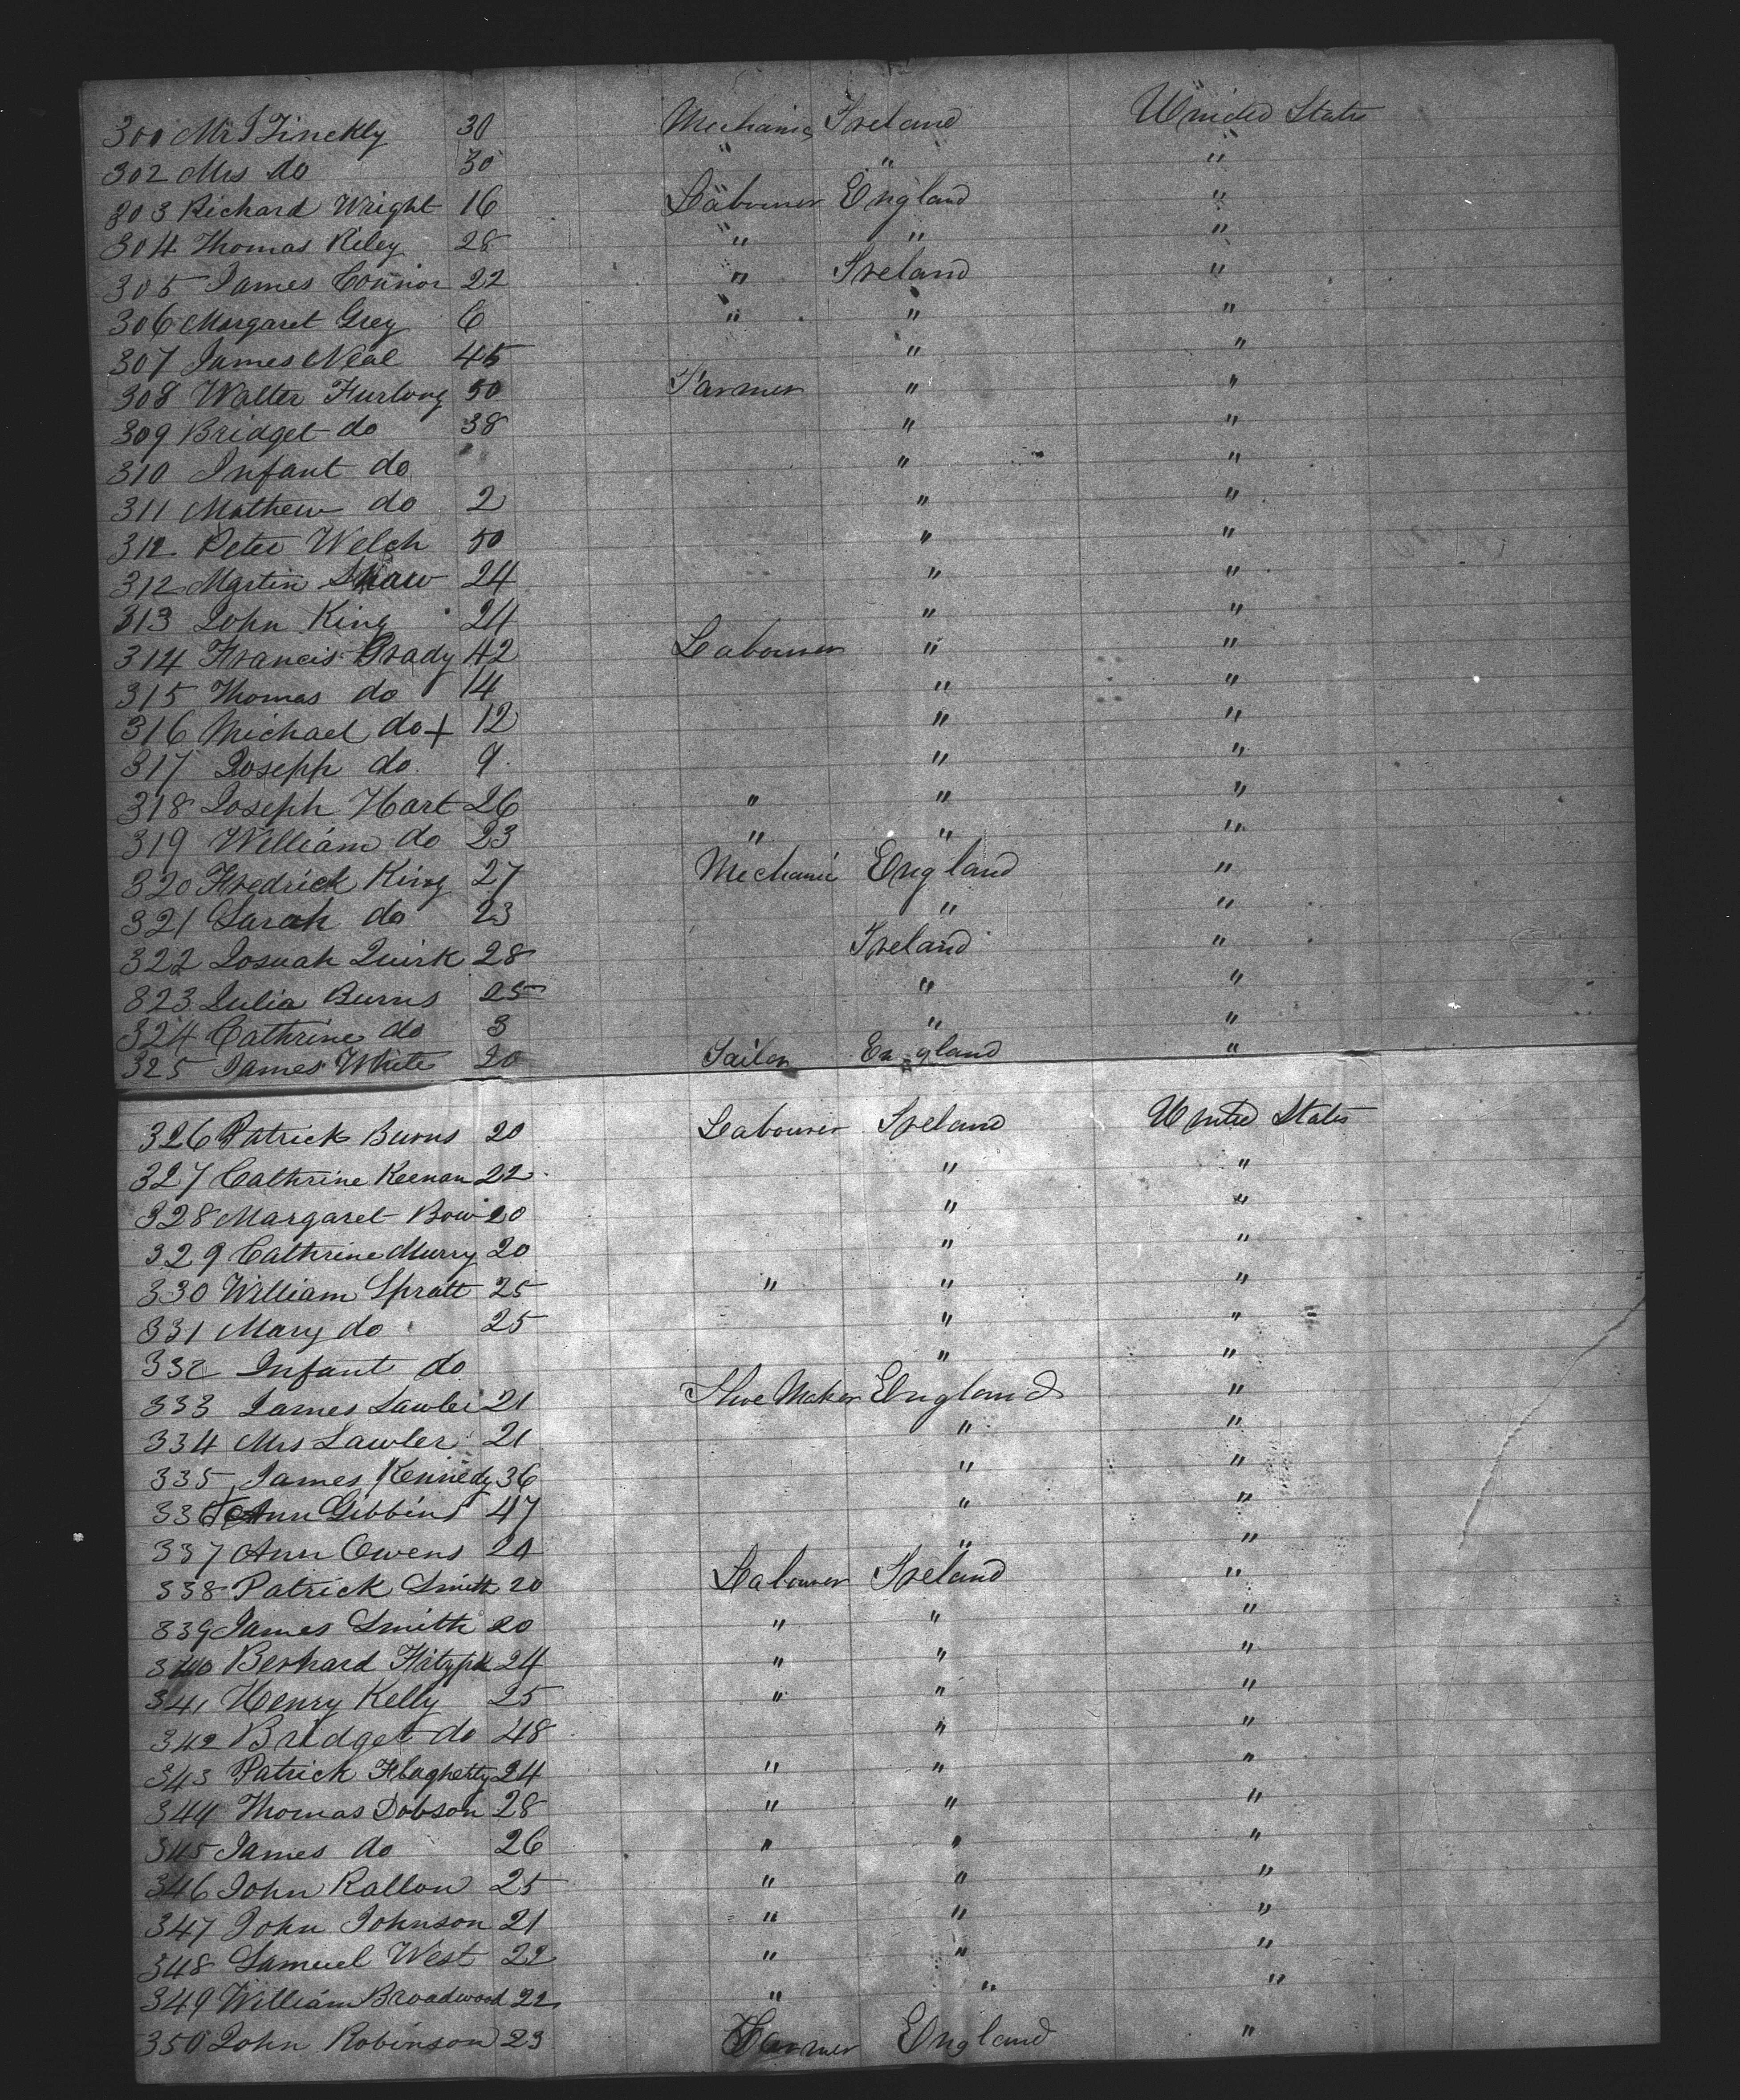 301 Mr J Finckly 30 Mechanic Ireland United States
302 Mrs do 30 " " "
303 Richard Wright 16 Labourer England "
304 Thomas Riley 28 " " "
305 James Connor 22 " Ireland "
306 Margaret Grey 6 " " "
307 James Neal 45 " "
308 Walter Furlong 50 Farmer " "
309 Bridget do 38 " "
310 Infant do " "
311 Mathew do 2 " "
312 Peter Welch 50 " "
312 Martin Shaw 24 " "
313 John King 24 " "
314 Francis Grady 42 Labourer " "
315 Thomas do 14 " "
316 Michael do + 12 " "
317 Joseph do 9 " "
318 Joseph Hart 26 " " "
319 William do 23 " " "
320 Fredrick King 27 Mechanic England "
321 Sarah do 23 " "
322 Josuah Quirk 28 Ireland "
323 Julia Burns 25 " "
324 Cathrine do 3 " "
325 James White 20 Sailor England "
326 Patrick Burns 20 Labourer Ireland United States
327 Cathrine Keenan 22 " "
328 Margaret Bow 20 " "
329 Cathrine Murry 20 " "
330 William Spratt 25 " " "
331 Mary do 25 " "
332 Infant do " "
333 James Lawler 21 Shoe Maker England "
334 Mrs Lawler 21 " "
335 James Kennedy 36 " "
336 + Ann Gibbins 47 " "
337 Ann Owens 24 " "
338 Patrick Smith 20 Labourer Ireland "
339 James Smith 20 " " "
340 Berhard Fitzpk 24 " " "
341 Henry Kelly 25 " " "
342 Bridget do 48 " "
343 Patrick Flagherty 24 " " "
344 Thomas Dobson 28 " " "
345 James do 26 " " "
346 John Rallon 25 " " "
347 John Johnson 21 " " "
348 Samuel West 22 " " "
349 William Broadwood 22 " " "
350 John Robinson 23 Farmer England "